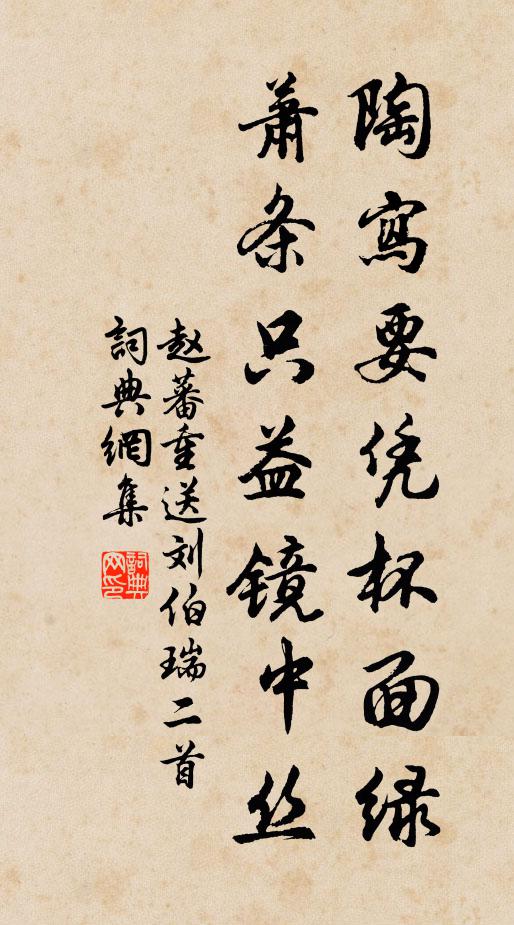 陶寫要凭杯面绿
萧条只益镜中丝
赵蕃重送刘伯瑞二首
詞典網集
詞典网印